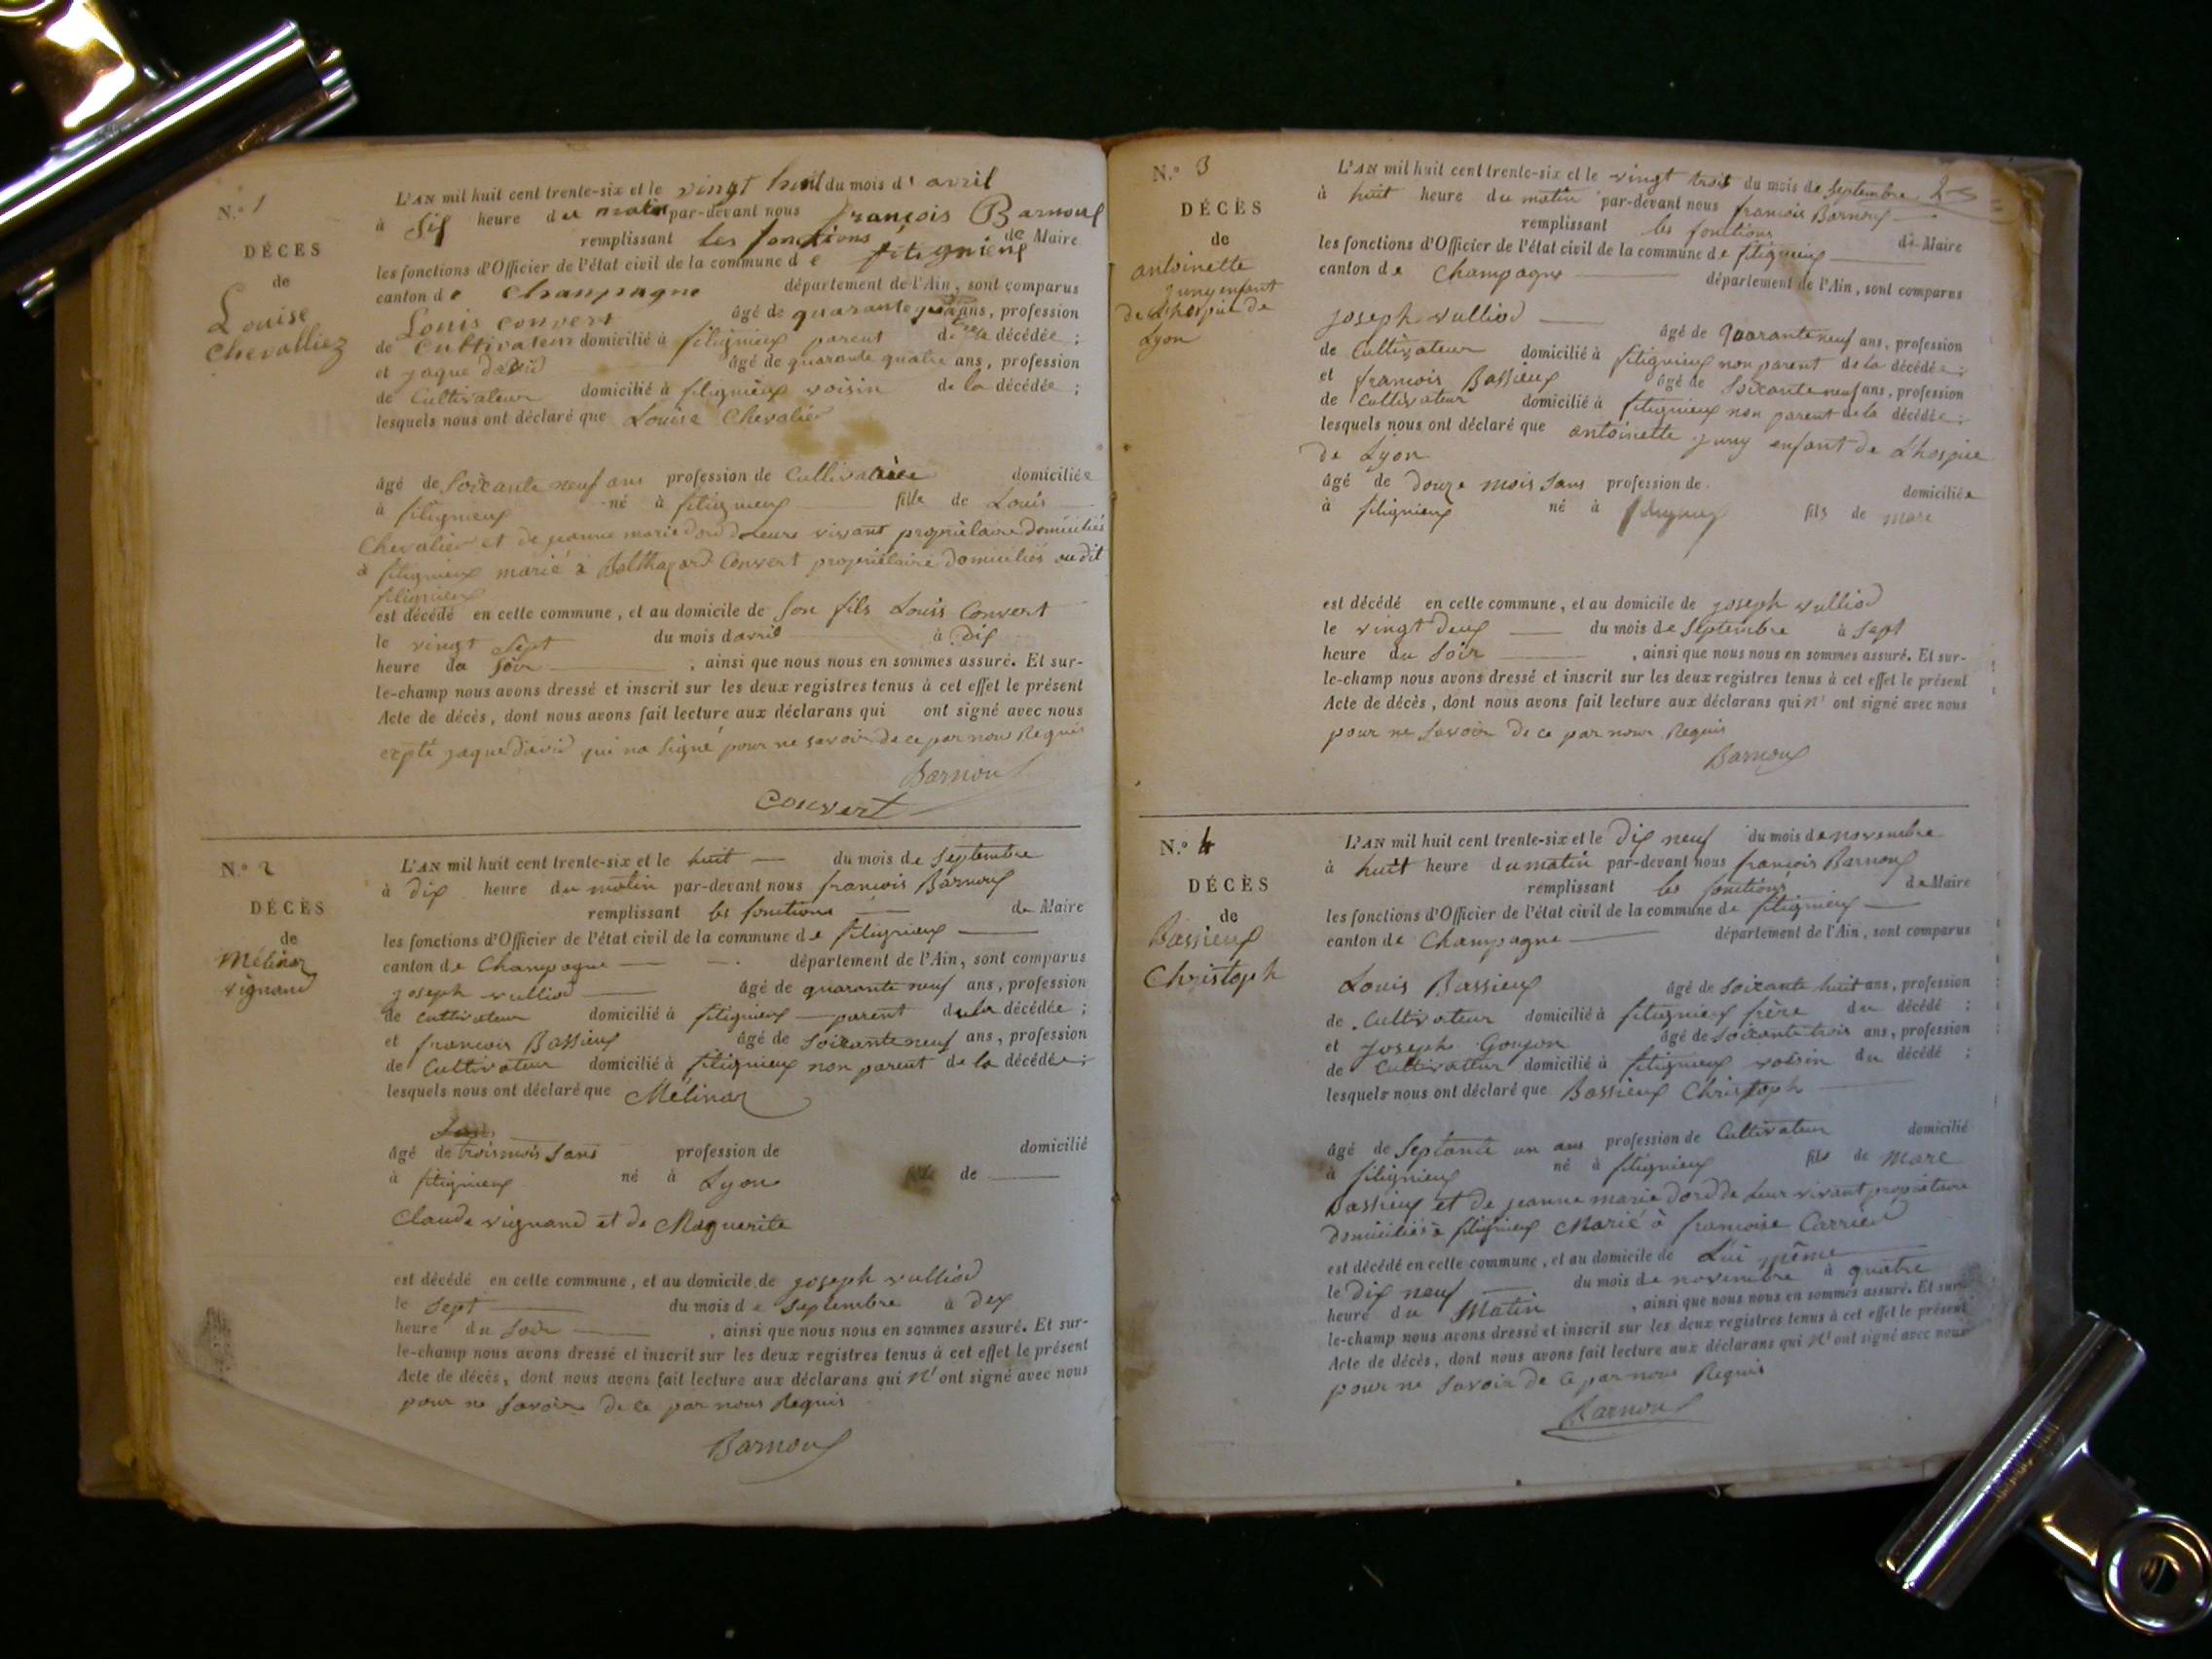 N.° 1
DÉCES
de
Louise
Chevalliez
L'AN mil huit cent trente-six et le vingt huit du mois d' avril
à Six heure du matin par-devant nous françois Barnoux
remplissant les fonctions de Maire
les fonctions d'Officier de l'état civil de la commune de fitignieux
canton de Champagne département de l'Ain, sont comparus
Louis convert âgé de quarante ans, profession
de Cultivateur domicilié à fitignieux parent de la décédée ;
et jaque david âgé de quarante quatre ans, profession
de Cultivateur domicilié à fitignieux voisin de la décédée ;
lesquels nous ont déclaré que Louise Chevalier
âgé de Soixante neuf ans profession de Cultivatrice domiciliée
à fitignieux né à fitignieux fille de Louis
Chevalier et de jeanne marie dord de leurs vivant propriètaire domiciliés
à fitignieux marié à Balthazard Convert propriétaire domiciliés au dit
fitignieux
est décédé en cette commune, et au domicile de Son fils Louis Convert
le vingt Sept du mois d avril à dix
heure du Soir , ainsi que nous nous en sommes assuré. Et sur-
le-champ nous avons dressé et inscrit sur les deux registres tenus à cet effet le présent
Acte de décès, dont nous avons fait lecture aux déclarans qui ont signé avec nous
expté jaque david qui na Signé pour ne savoir de ce par nous Requis
Barnoux
Convert
N.° 2
DÉCÈS
de
Mélinar
vignand
L'AN mil huit cent trente-six et le huit du mois de Septembre
à dix heure du matin par-devant nous francois Barnoux
remplissant les fonctions de Maire
les fonctions d'Officier de l'état civil de la commune de fitignieux
canton de Champagne département de l'Ain, sont comparus
joseph vulliod âgé de quarante neuf ans, profession
de cultivateur domicilié à fitignieux parent de la décédée ;
et francois Bassieux âgé de Soixante neuf ans, profession
de Cultivateur domicilié à fitignieux non parent de la décédée ;
lesquels nous ont déclaré que Mélinar
âgé de trois mois Sans profession de domicilié
à fitignieux né à Lyon de
Claude vignand et de Maguerite
est décédé en cette commune, et au domicile de joseph vulliod
le Sept du mois de Septembre à dex
heure du Soir , ainsi que nous nous en sommes assuré. Et sur-
le-champ nous avons dressé et inscrit sur les deux registres tenus à cet effet le présent
Acte de décès, dont nous avons fait lecture aux déclarans qui n' ont signé avec nous
pour ne Savoir de ce par nous Requis
Barnoux
N.° 3
DÉCÈS
de
antoinette
juny enfant
de L'hospice de
Lyon
L'AN mil huit cent trente-six et le vingt trois du mois de Septembre
à huit heure du matin par-devant nous francois Barnoux
remplissant les fonctions de Maire
les fonctions d'Officier de l'état civil de la commune de fitignieux
canton de Champagne département de l'Ain, sont comparus
joseph vulliod âgé de quarante neuf ans, profession
de Cultivateur domicilié à fitignieux non parent de la décédée ;
et francois Bassieux âgé de Soixante neuf ans, profession
de cultivateur domicilié à fitignieux non parent de la décédée ;
lesquels nous ont déclaré que antoinette juny enfant de L'hospice
de Lyon
âgé de douze mois Sans profession de domiciliée
à fitignieux né à fitignieux fils de mare
est décédé en cette commune, et au domicile de joseph vulliod
le vingt deux du mois de Septembre à Sept
heure du Soir , ainsi que nous nous en sommes assuré. Et sur-
le-champ nous avons dressé et inscrit sur les deux registres tenus à cet effet le présent
Acte de décès, dont nous avons fait lecture aux déclarans qui n' ont signé avec nous
pour ne Savoir de ce par nous Requis
Barnoux
N.° 4
DÉCÈS
de
Bassieux
Christoph
L'AN mil huit cent trente-six et le dix neuf du mois de novembre
à huit heure du matin par-devant nous françois Barnoux
remplissant les fonctions de Maire
les fonctions d'Officier de l'état civil de la commune de fitignieux
canton de Champagne département de l'Ain, sont comparus
Louis Bassieux âgé de Soixante huit ans, profession
de Cultivateur domicilié à fitignieux frère du décédé ;
et Joseph Goujon âgé de Soixante trois ans, profession
de Cultivateur domicilié à fitignieux voisin du décédé ;
lesquels nous ont déclaré que Bassieux Christoph
âgé de Septante un ans profession de Cultivateur domicilié
à fitignieux né à fitignieux fils de Mare
Bassieux et de jeanne marie dord de Leur vivant propriétaire
domiciliés à fitignieux Marié à francoise Carrier
est décédé en cette commune, et au domicile de Lui même
le dix neuf du mois de novembre à quatre
heure du Matin , ainsi que nous nous en sommes assuré. Et sur-
le-champ nous avons dressé et inscrit sur les deux registres tenus à cet effet le présent
Acte de décès, dont nous avons fait lecture aux déclarans qui n' ont signé avec nous
pour ne Savoir de ce par nous Requis
Barnoux